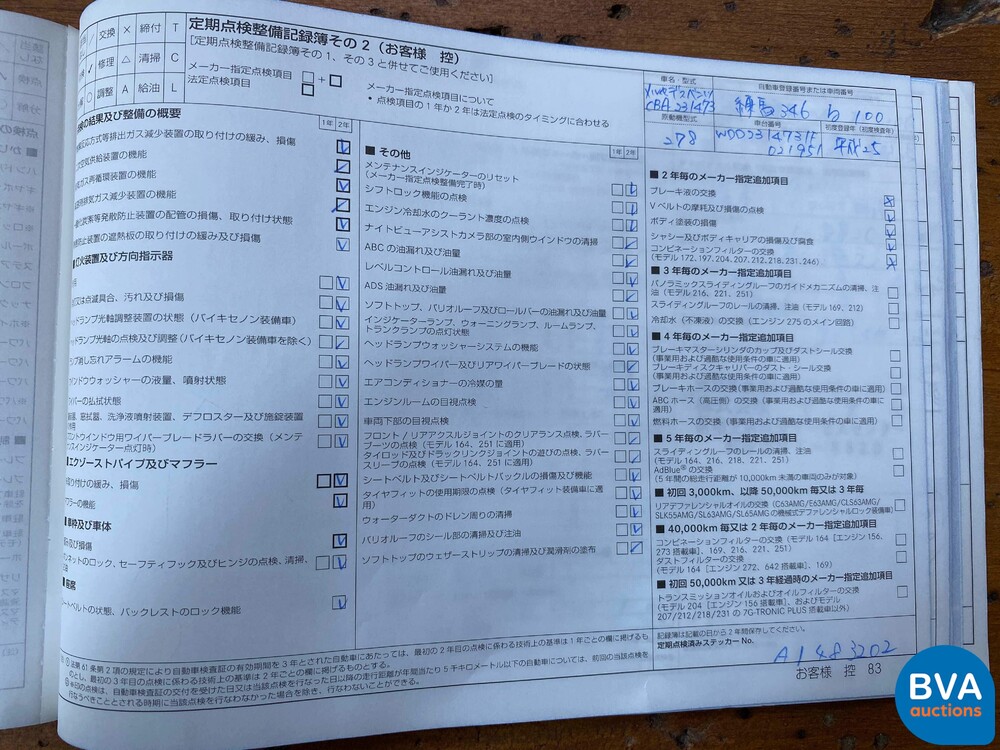 交換 × 締付 T
修理 △ 清掃 C
調整 A 給油 L
定期点検整備記録簿その2(お客様 控)
[定期点検整備記録簿その1、その3と併せてご使用ください]
メーカー指定点検項目
法定点検項目
メーカー指定点検項目について
・点検項目の1年か2年は法定点検のタイミングに合わせる
車名・型式
CBA 231473
原動機型式
278
自動車登録番号または車両番号
練馬 346 ち 100
車台番号
WDD2314731F
021951
初度登録年(初度検査年)
平成25
の結果及び整備の概要
1年 2年
等排出ガス減少装置の取り付けの緩み、損傷
空気供給装置の機能
ガス再循環装置の機能
排気ガス減少装置の機能
炭素等発散防止装置の配管の損傷、取り付け状態
防止装置の遮熱板の取り付けの緩み及び損傷
火装置及び方向指示器
又は点滅具合、汚れ及び損傷
ッドランプ光軸調整装置の状態(バイキセノン装備車)
ッドランプ光軸の点検及び調整(バイキセノン装備車を除く)
プ消し忘れアラームの機能
ンドウウォッシャーの液量、噴射状態
パーの払拭状態
、窓拭器、洗浄液噴射装置、デフロスター及び施錠装置
ロントウインドウ用ワイパーブレードラバーの交換(メンテ
スインジケーター点灯時)
エグゾーストパイプ及びマフラー
取り付けの緩み、損傷
フラーの機能
枠及び車体
及び損傷
ンネットのロック、セーフティフック及びヒンジの点検、清掃、
座席
ートベルトの状態、バックレストのロック機能
■ その他
1年 2年
メンテナンスインジケーターのリセット
(メーカー指定点検整備完了時)
シフトロック機能の点検
エンジン冷却水のクーラント濃度の点検
ナイトビューアシストカメラ部の室内側ウインドウの清掃
ABC の油漏れ及び油量
レベルコントロール油漏れ及び油量
ADS 油漏れ及び油量
ソフトトップ、バリオルーフ及びロールバーの油漏れ及び油量
インジケーターランプ、ウォーニングランプ、ルームランプ、
トランクランプの点灯状態
ヘッドランプウォッシャーシステムの機能
ヘッドランプワイパー及びリアワイパーブレードの状態
エアコンディショナーの冷媒の量
エンジンルームの目視点検
車両下部の目視点検
フロント / リアアクスルジョイントのクリアランス点検、ラバー
ブーツの点検(モデル 164、251 に適用)
タイロッド及びドラックリンクジョイントの遊びの点検、ラバー
スリーブの点検(モデル 164、251 に適用)
シートベルト及びシートベルトバックルの損傷及び機能
タイヤフィットの使用期限の点検(タイヤフィット装備車に適
用)
ウォーターダクトのドレン周りの清掃
バリオルーフのシール部の清掃及び注油
ソフトトップのウェザーストリップの清掃及び潤滑剤の塗布
■ 2 年毎のメーカー指定追加項目
ブレーキ液の交換
V ベルトの摩耗及び損傷の点検
ボディ塗装の損傷
シャシー及びボディキャリアの損傷及び腐食
コンビネーションフィルターの交換
(モデル 172.197.204.207.212.218.231.246)
■ 3 年毎のメーカー指定追加項目
パノラミックスライディングルーフのガイドメカニズムの清掃、注
油(モデル 216、221、251)
スライディングルーフのレールの清掃、注油(モデル 169、212)
冷却水(不凍液)の交換(エンジン 275 のメイン回路)
■ 4 年毎のメーカー指定追加項目
ブレーキマスターシリンダのカップ及びダストシール交換
(事業用および過酷な使用条件の車に適用)
ブレーキディスクキャリパーのダスト・シール交換
(事業用および過酷な使用条件の車に適用)
ブレーキホースの交換(事業用および過酷な使用条件の車に適用)
ABC ホース(高圧側)の交換(事業用および過酷な使用条件の車に
適用)
燃料ホースの交換(事業用および過酷な使用条件の車に適用)
■ 5 年毎のメーカー指定追加項目
スライディングルーフのレールの清掃、注油
(モデル 164、216、218、221、251)
AdBlue® の交換
(5 年間の総走行距離が 10,000km 未満の車両のみが対象)
■ 初回 3,000km、以降 50,000km 毎又は 3 年毎
リアデファレンシャルオイルの交換(C63AMG/E63AMG/CLS63AMG/
SLK55AMG/SL63AMG/SL65AMG の機械式デファレンシャルロック装備車)
■ 40,000km 毎又は 2 年毎のメーカー指定追加項目
コンビネーションフィルターの交換(モデル 164 [エンジン 156、
273 搭載車]、169、216、221、251)
ダストフィルターの交換
(モデル 164 [エンジン 272、642 搭載車]、169)
■ 初回 50,000km 又は 3 年経過時のメーカー指定追加項目
トランスミッションオイルおよびオイルフィルターの交換
(モデル 204 [エンジン 156 搭載車]、およびモデル
207/212/218/231 の 7G-TRONIC PLUS 搭載車以外)
記録簿は記載の日から 2 年間保存してください。
定期点検済みステッカー No.
A1483202
お客様 控 83
法第 61 条第 2 項の規定により自動車検査証の有効期間を 3 年とされた自動車にあたっては、最初の 2 年目の点検に係わる技術上の基準は 1 年ごとの欄に掲げるも
のとし、最初の 3 年目の点検に係わる技術上の基準は 2 年ごとの欄に掲げるものとする。
の点検は、自動車検査証の交付を受けた日又は当該点検を行なった日以降の走行距離が年間当たり 5 千キロメートル以下の自動車については、前回の当該点検を
行なうべきこととされる時期に当該点検を行なわなかった場合を除き、行なわないことができる。
BVA
auctions